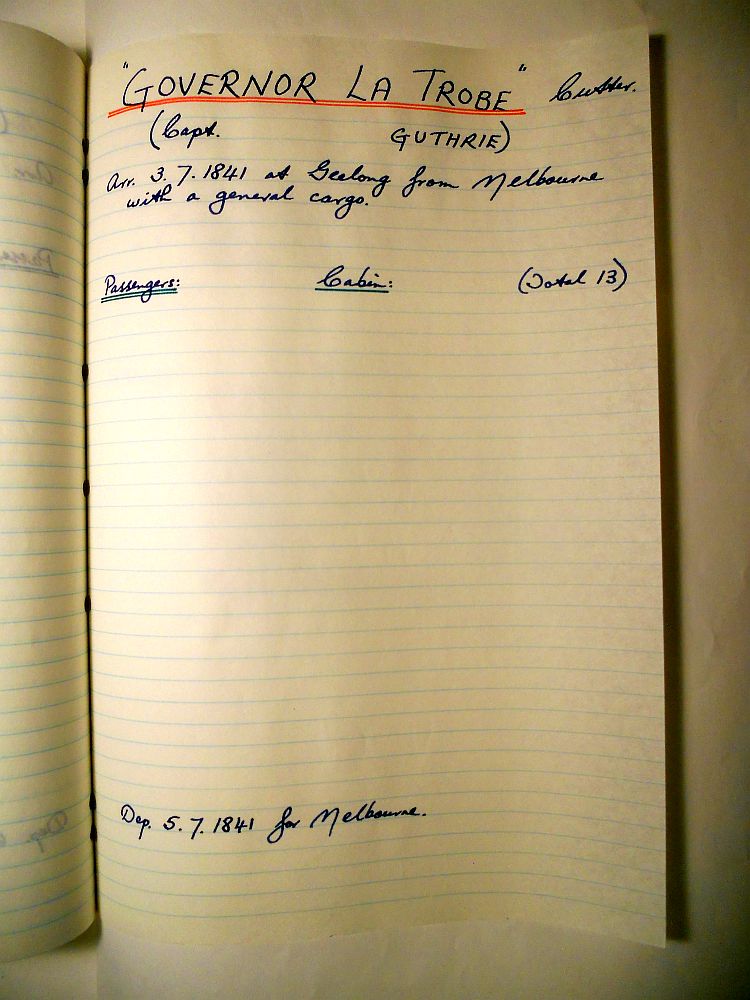 "GOVERNOR LA TROBE" Cutter.
(Capt. GUTHRIE)
Arr. 3.7.1841 at Geelong from Melbourne
with a general cargo.
Passengers: Cabin: (Total 13)
Dep. 5.7.1841 for Melbourne.